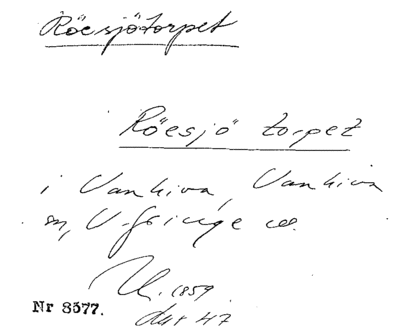 Röesjötorpet
Röesjö torpet
i Vankiva, Vankiva
sn, V. Göinge
1859
Nr 8577.
47